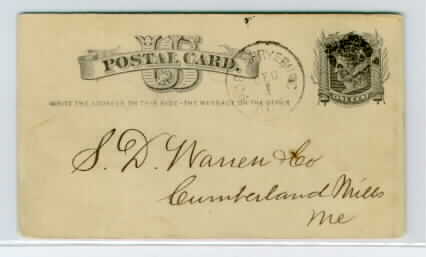 POSTAL CARD.
WRITE THE ADDRESS ON THIS SIDE - THE MESSAGE ON THE OTHER
S. D. Warren & Co
Cumberland Mills
Me